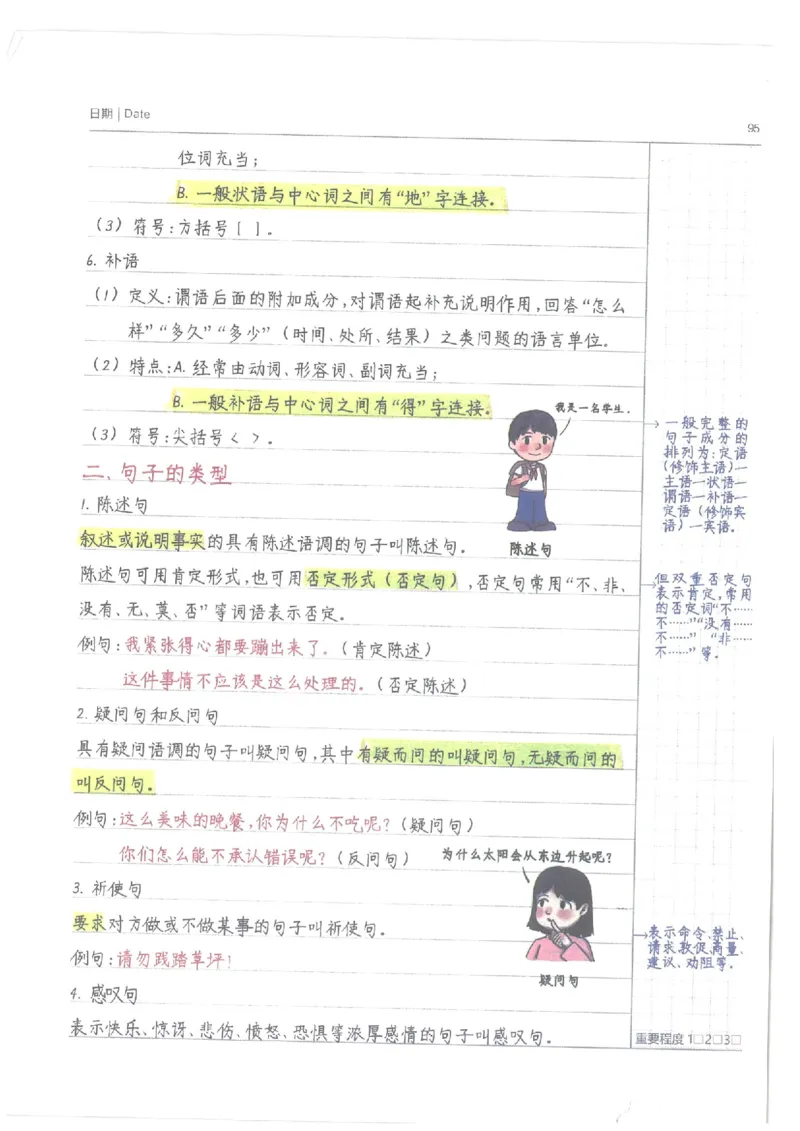 日期 | Date
95
位词充当；
B. 一般状语与中心词之间有“地”字连接。
（3）符号：方括号［ ］。
6. 补语
（1）定义：谓语后面的附加成分，对谓语起补充说明作用，回答“怎么
样”“多久”“多少”（时间、处所、结果）之类问题的语言单位。
（2）特点：A. 经常由动词、形容词、副词充当；
B. 一般补语与中心词之间有“得”字连接。
（3）符号：尖括号〈 〉。
我是一名学生.
陈述句
→一般完整的
句子成分的
排列为：定语
（修饰主语）—
主语—状语—
谓语—补语—
定语（修饰宾
语）—宾语。
二、句子的类型
1. 陈述句
叙述或说明事实的具有陈述语调的句子叫陈述句。
陈述句可用肯定形式，也可用否定形式（否定句），否定句常用“不、非、
没有、无、莫、否”等词语表示否定。
→但双重否定句
表示肯定，常用
的否定词“不……
不……”“没有……
不……”“非……
不……”等。
例句：我紧张得心都要蹦出来了。（肯定陈述）
这件事情不应该是这么处理的。（否定陈述）
2. 疑问句和反问句
具有疑问语调的句子叫疑问句，其中有疑而问的叫疑问句，无疑而问的
叫反问句。
例句：这么美味的晚餐，你为什么不吃呢？（疑问句）
你们怎么能不承认错误呢？（反问句）
为什么太阳会从东边升起呢？
疑问句
3. 祈使句
要求对方做或不做某事的句子叫祈使句。
→表示命令、禁止、
请求、敦促、商量、
建议、劝阻等。
例句：请勿践踏草坪！
4. 感叹句
表示快乐、惊讶、悲伤、愤怒、恐惧等浓厚感情的句子叫感叹句。
重要程度 1□2□3□